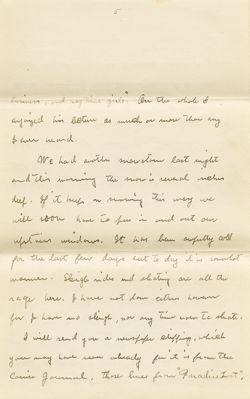 5
business, and anytime girls". On the whole I
enjoyed his lecture as much or more than any
I ever heard.
We had another snowstorm last night
and this morning the snow is several inches
deep. If it keeps on snowing this way we
will soon have to pass in and out our
upstairs windows. It has been awfully cold
for the last few days but to day it is somewhat
warmer. Sleigh rides and skating are all the
rage here. I have not done either however
for I have no sleigh, nor any time even to skate.
I will send you a newspaper clipping, which
you may have seen already for it is from the
Courier Journal, those lines from "Paradise Lost".